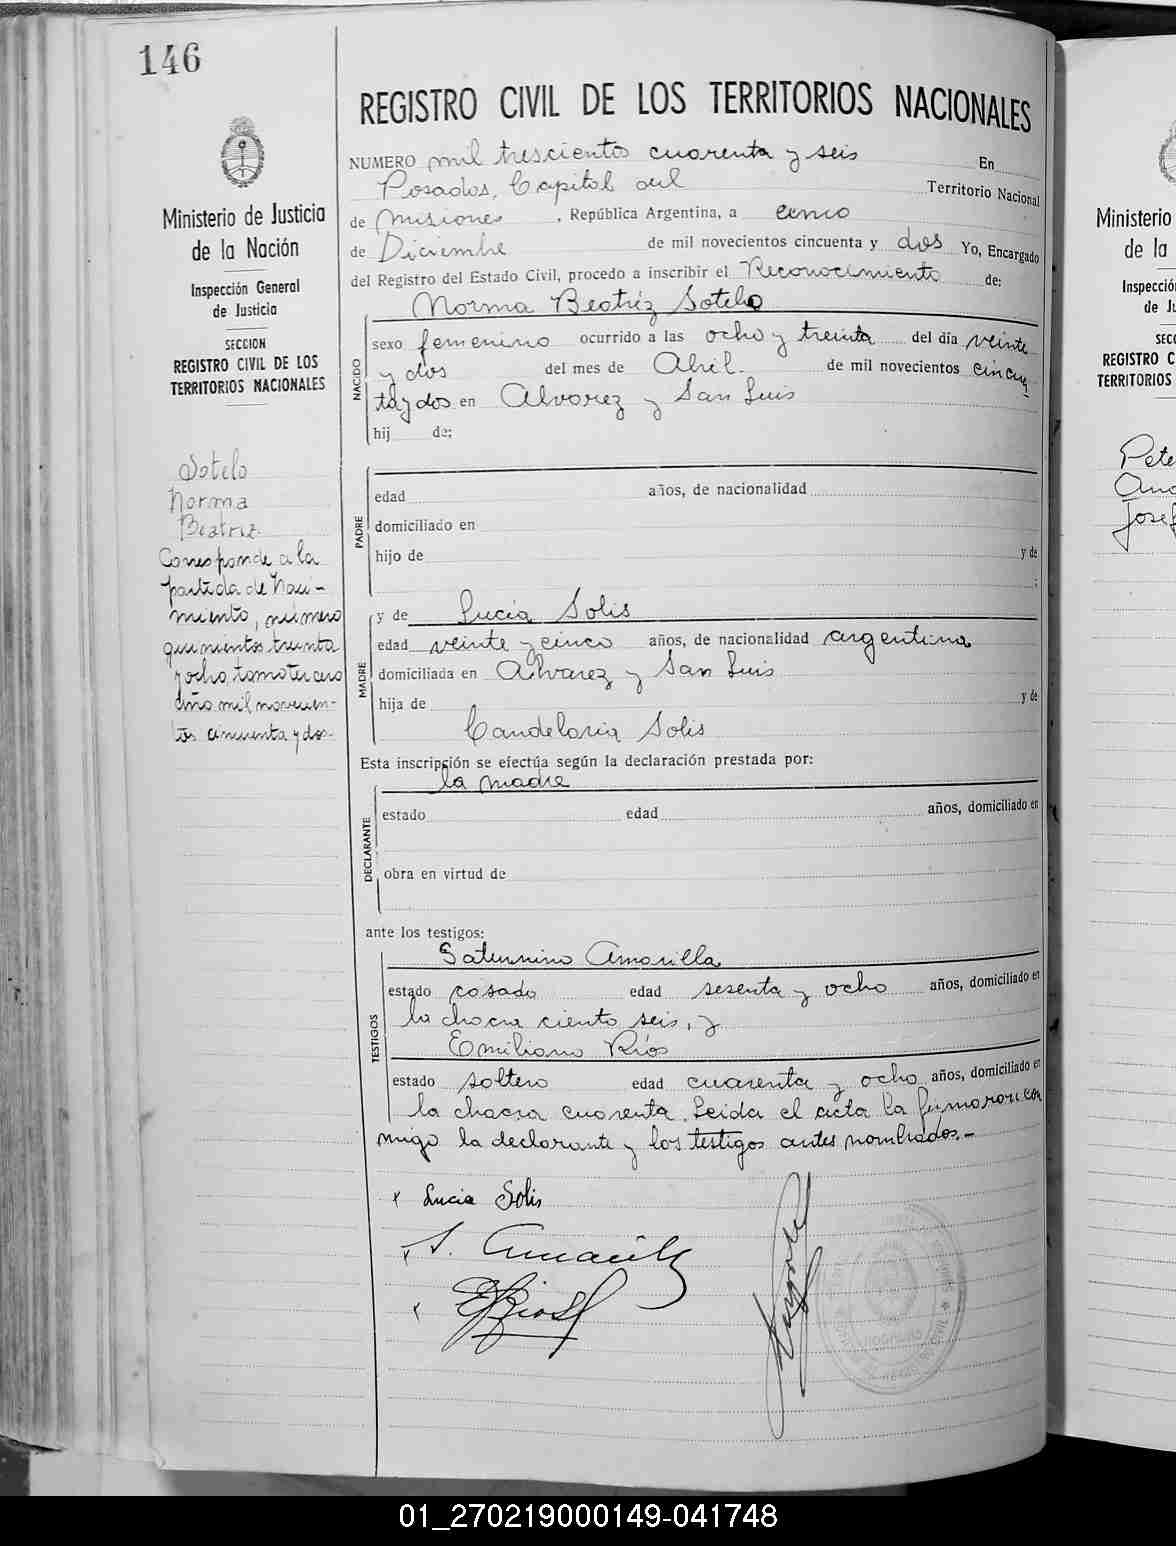 146
REGISTRO CIVIL DE LOS TERRITORIOS NACIONALES
NUMERO mil trescientos cuarenta y seis En
Posadas, Capital del Territorio Nacional
de Misiones, República Argentina, a cinco
de Diciembre de mil novecientos cincuenta y dos Yo, Encargado
del Registro del Estado Civil, procedo a inscribir el Reconocimiento de:
Norma Beatriz Sotelo
NACIDO
sexo femenino ocurrido a las ocho y treinta del día veinte
y dos del mes de Abril. de mil novecientos cincuen
ta y dos en Alvarez y San Luis
hij de:
PADRE
edad años, de nacionalidad
domiciliado en
hijo de y de
;
MADRE
y de Lucia Solis
edad veinte y cinco años, de nacionalidad argentina
domiciliada en Alvarez y San Luis
hija de y de
Candelaria Solis
Esta inscripción se efectúa según la declaración prestada por:
la madre
DECLARANTE
estado edad años, domiciliado en
obra en virtud de
ante los testigos:
TESTIGOS
Saturnino Amarilla
estado casado edad sesenta y ocho años, domiciliado en
la chacra ciento seis, y
Emiliano Ríos
estado soltero edad cuarenta y ocho años, domiciliado en
la chacra cuarenta. Leida el acta la firmaron con
migo la declarante y los testigos antes nombrados.-
x Lucia Solis
x S. Amarilla
x E Rios
Ministerio de Justicia
de la Nación
Inspección General
de Justicia
SECCION
REGISTRO CIVIL DE LOS
TERRITORIOS NACIONALES
Sotelo
Norma
Beatriz
Corresponde a la
partida de Naci-
miento, número
quinientos treinta
y ocho, tomo tercero
año mil novecien-
tos cincuenta y dos-
Ministerio
de la
Inspecció
de Ju
SECC
REGISTRO C
TERRITORIOS
Pete
Ana
Josef
01_270219000149-041748